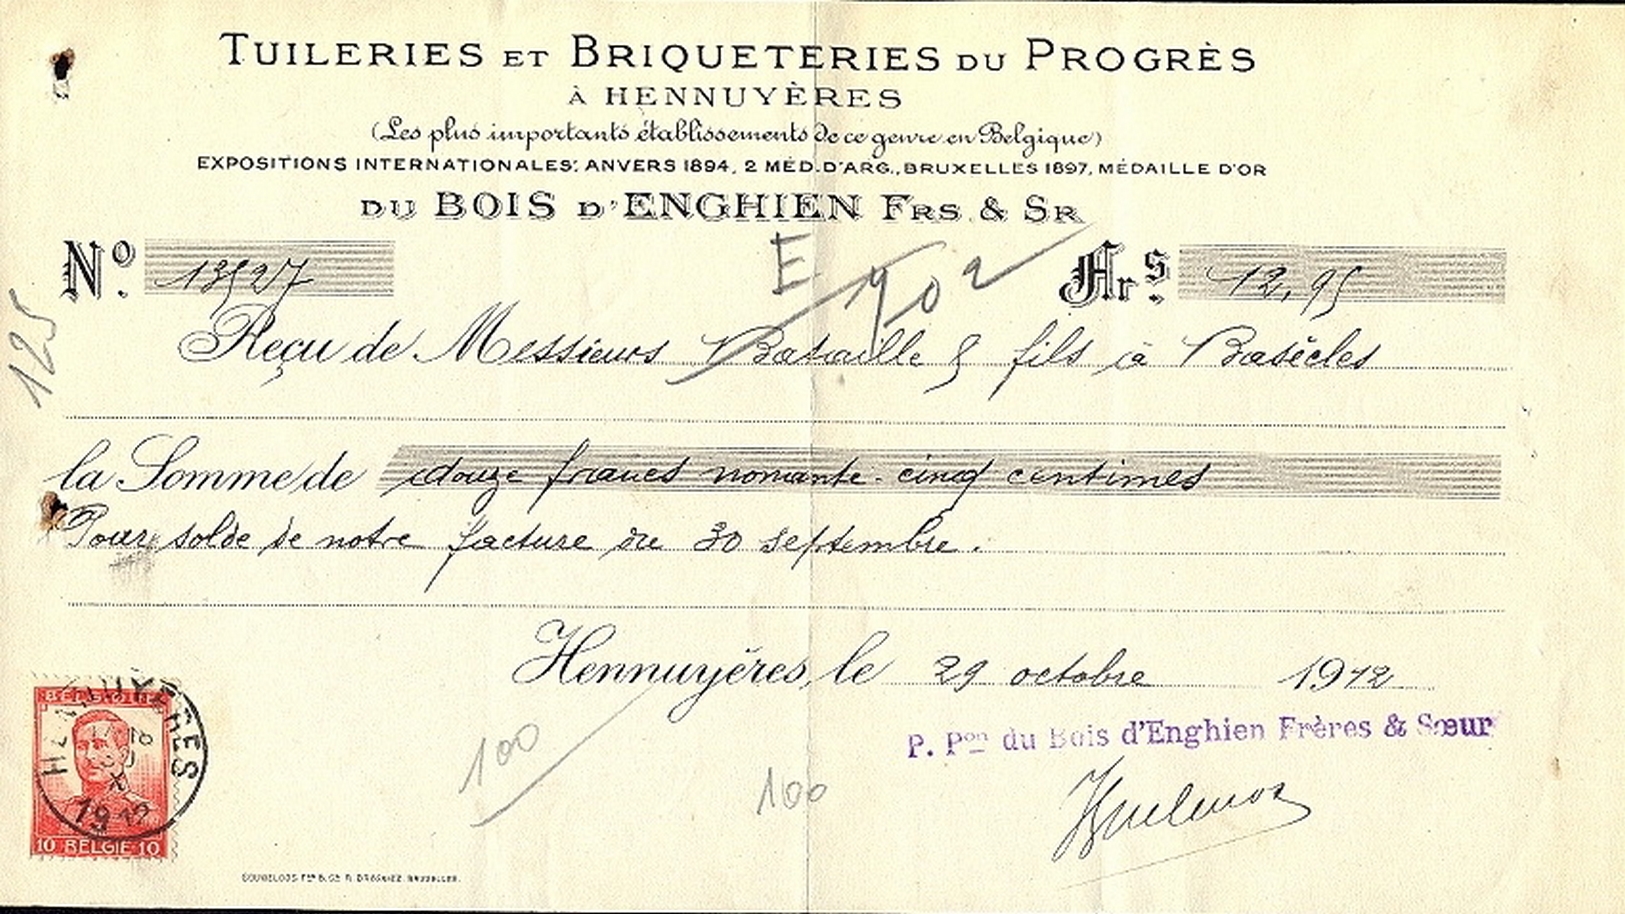 TUILERIES ET BRIQUETERIES DU PROGRÈS
À HENNUYÈRES
(Les plus importants établissements de ce genre en Belgique)
EXPOSITIONS INTERNATIONALES: ANVERS 1894, 2 MÉD. D'ARG., BRUXELLES 1897, MÉDAILLE D'OR
DU BOIS D'ENGHIEN FRS & SR
No. 13527 E 902 Frs. 12,95
125
Reçu de Messieurs Bataille & fils à Basècles
la Somme de douze francs nonante-cinq centimes
Pour solde de notre facture du 30 septembre.
Hennuyères, le 29 octobre 1912
P. Pon du Bois d'Enghien Frères & Sœur
100
100
BELGIQUE
HENNUYERES
1912
10 BELGIË 10